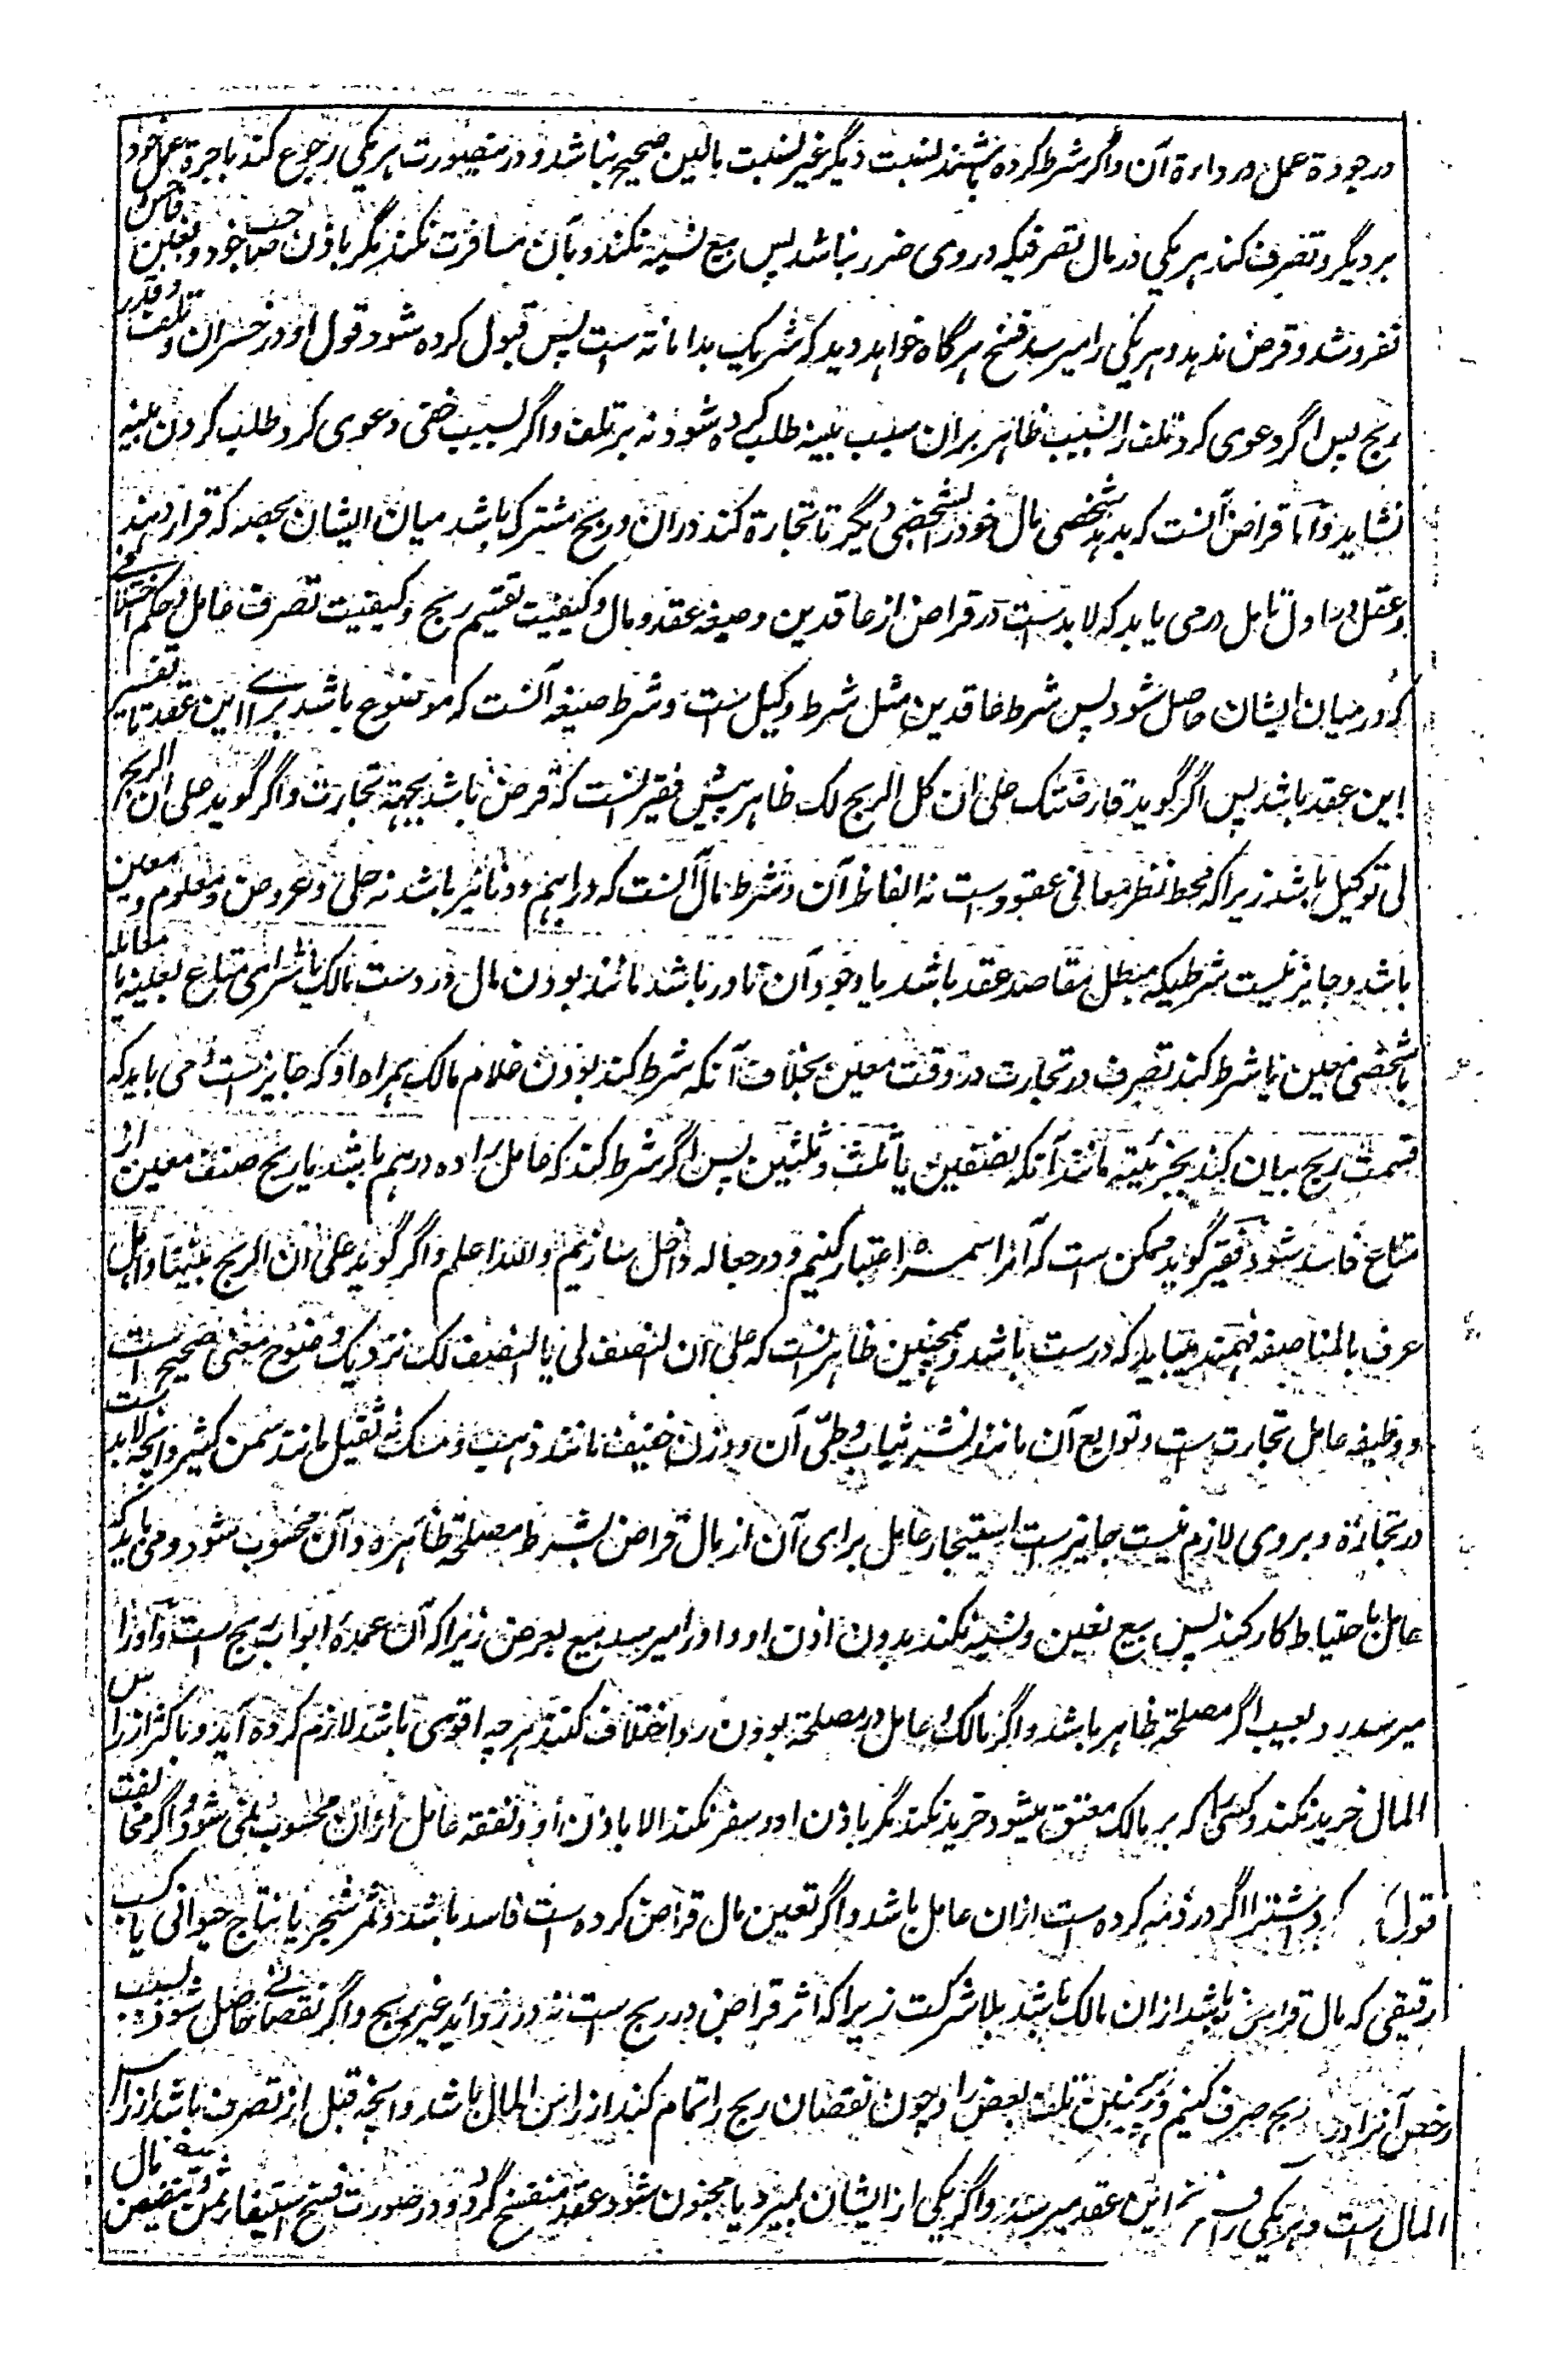 در جودة عمل و رداءة آن و اگر شرط کرده باشند نسبت دیگر غیر نسبت مالین صحیح نباشد و درینصورت هر یکی رجوع کند باجرة عمل خود
بر دیگر و تصرف کند هر یکی در مال تصرفیکه در وی ضرر نباشد پس بیع نسیه نکند و بآن مسافرت نکند مگر باذن صاحب خود و بغبن فاحش
نفروشد و قرض ندهد و هر یکی را میرسد فسخ هرگاه خواهد و ید که شریک ید امانة است پس قبول کرده شود قول او در خسران و تلف و قدر
ربح پس اگر دعوی کرد تلف را بسبب ظاهر بران سبب بینه طلب کرده شود نه بر تلف و اگر بسبب خفی دعوی کرد طلب کردن بینه
نشاید و اما قراض آنست که بدهد شخصی مال خود را بشخصی دیگر تا تجارة کند دران و ربح مشترک باشد میان ایشان بحصه که قرار دهند
و عقل در اول تامل درمی یابد که لا بدست در قراض از عاقدین و صیغه عقد و مال و کیفیت تقسیم ربح و کیفیت تصرف عامل و حکم اختلافی
که در میان ایشان حاصل شود پس شرط عاقدین مثل شرط وکیل ست و شرط صیغه آنست که موضوع باشد برای این عقد یا تفسیر
این عقد باشد پس اگر گوید قارضتک علی ان کل الربح لک ظاهر پیش فقیر آنست که قرض باشد بجهة تجارت و اگر گوید علی ان الربح
لی توکیل باشد زیرا که محط نظر معانی عقود ست نه الفاظ آن و شرط مال آنست که دراهم و دنانیر باشد نه حلی و عروض و معلوم و معین
باشد و جایز نیست شرطیکه مبطل مقاصد عقد باشد یا وجود آن نادر باشد مانند بودن مال در دست مالک یا شرای متاع بعینه یا معامله
با شخصی معین یا شرط کند تصرف در تجارت در وقت معین بخلاف آنکه شرط کند بودن غلام مالک همراه او که جایز ست و می باید که
قسمت ربح بیان کند بجزئیة مانند آنکه نصفین یا ثلث و ثلثین پس اگر شرط کند که عامل را ده درهم باشد یا ربح صنف معین از
متاع فاسد شود فقیر گوید ممکن ست که آنرا سمسرة اعتبار کنیم و در جعاله داخل سازیم والله اعلم و اگر گوید علی ان الربح بیننا و اهل
عرف بالمناصفه فهمند میباید که درست باشد و همچنین ظاهر آنست که علی ان النصف لی یا النصف لک نزدیک وضوح معنی صحیح است
و وظیفه عامل تجارت ست و توابع آن مانند نشر ثیاب و طی آن و وزن خفیف مانند ذهب و مسک نه ثقیل مانند سمن کثیر و آنچه لابد ست
در تجارة و بروی لازم نیست جایز ست استیجار عامل برای آن از مال قراض بشرط مصلحة ظاهره و آن محسوب شود و می باید که
عامل با حتیاط کار کند پس بیع بغبن و نسیه نکند بدون اذن او و او را میرسد بیع بعرض زیرا که آن عمدهٔ ابواب ربح ست و او را
میرسد رد بعیب اگر مصلحة ظاهر باشد و اگر مالک و عامل در مصلحة بودن رد اختلاف کنند هر چه اقوی باشد لازم کرده آید و باکثر از راس
المال خرید نکند و کسی را که بر مالک معتق میشود خرید نکند مگر باذن او و سفر نکند الا باذن او و نفقه عامل ازان محسوب نمی شود و اگر مخالفت
قول کرد شترا اگر در ذمه کرده است ازان عامل باشد و اگر تعین مال قراض کرده ست فاسد باشد و ثمر شجر یا نتاج حیوانی یا کسب
رقیقی که مال قراض باشد ازان مالک باشد بلا شرکت زیرا که اثر قراض در ربح ست نه در زواید غیر ربح و اگر نقصانی حاصل شود بسبب
رخص آنرا در ربح صرف کنیم و همچنین تلف بعض را و چون نقصان ربح را تمام کند از راس المال باشد و آنچه قبل از تصرف باشد از راس
المال ست و هر یکی را فسخ این عقد میرسد و اگر یکی از ایشان بمیرد یا مجنون شود عقد منفسخ گردد و در صورت فسخ استیفار ثمن و تنضیض بقیه مال